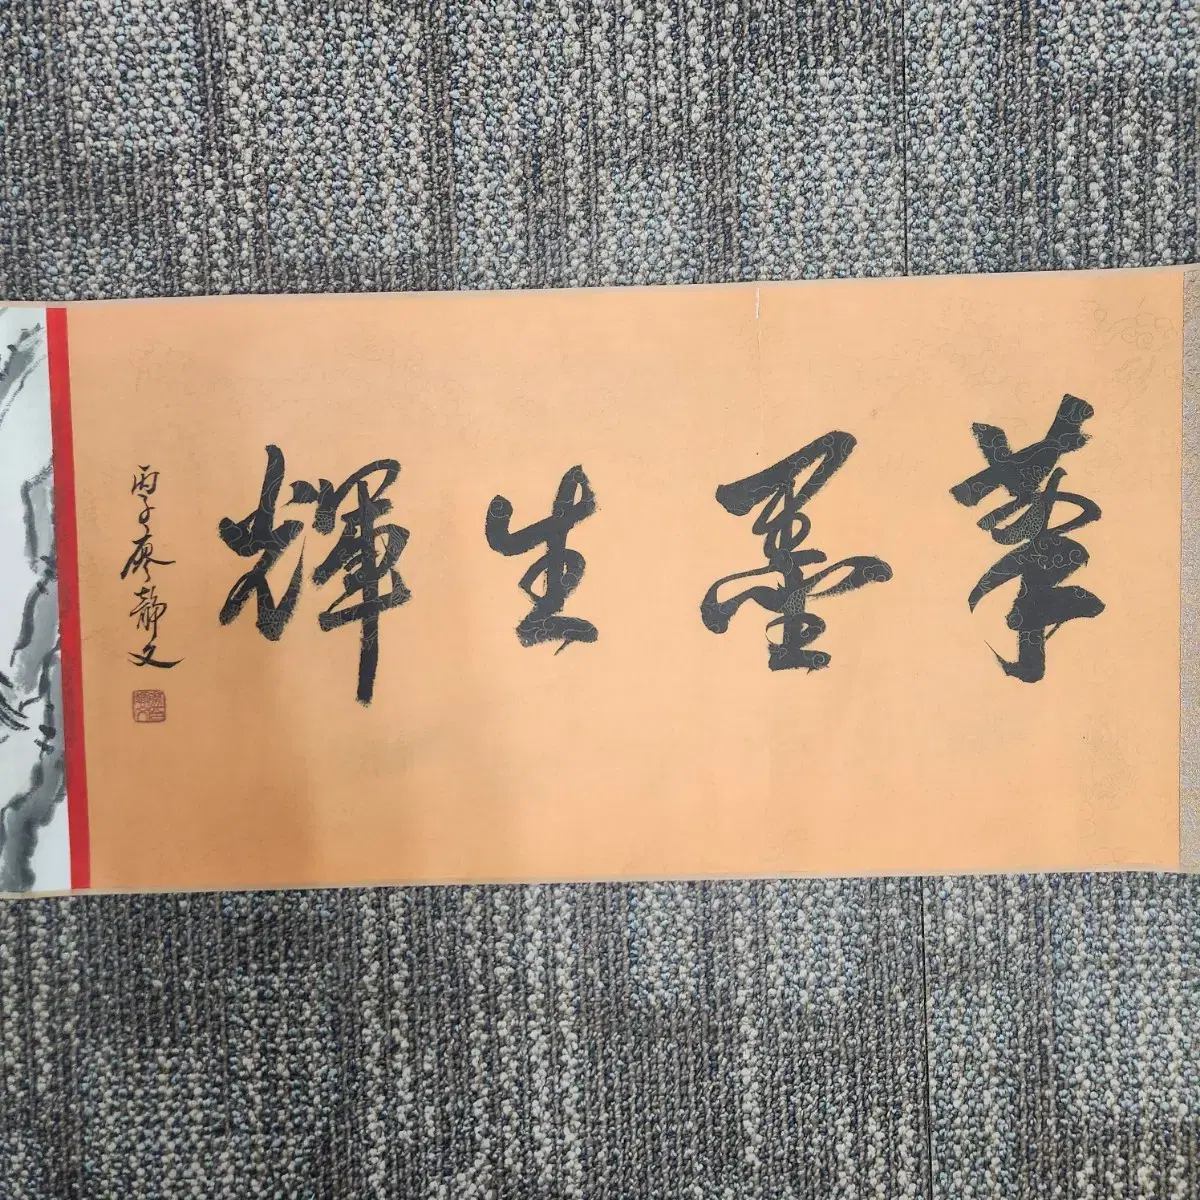 筆墨生輝
丙子廖靜文